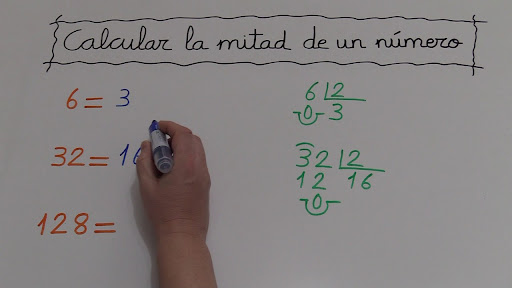 Calcular la mitad de un número
6 = 3
6 2
0 3
32 = 16
32 2
12 16
0
128 =